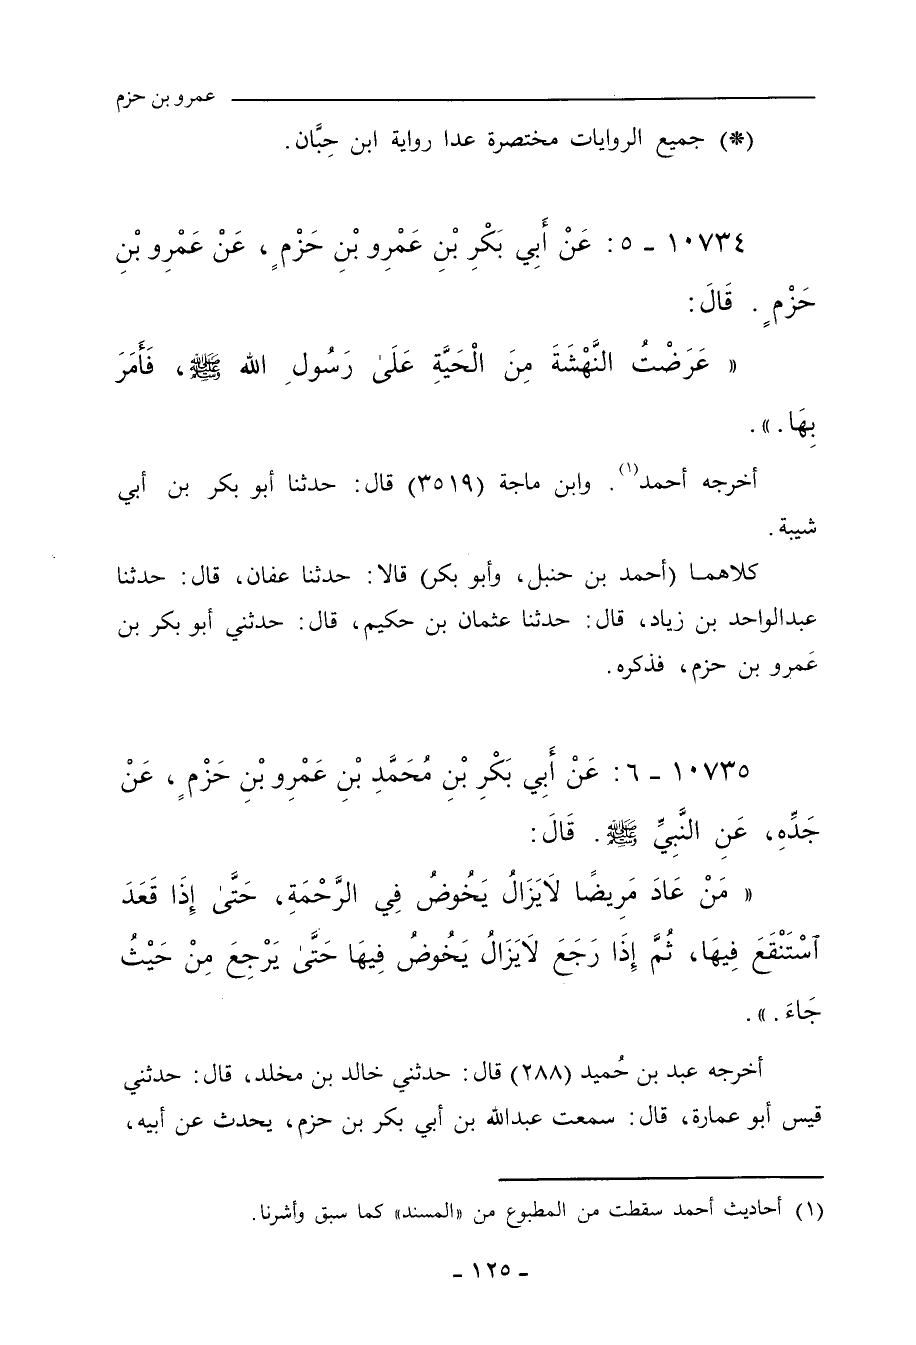 عمرو بن حزم
(*) جميع الروايات مختصرة عدا رواية ابن حِبَّان.
١٠٧٣٤ ـ ٥ : عَنْ أَبِي بَكْرِ بْنِ عَمْرِو بْنِ حَزْمٍ ، عَنْ عَمْرِو بْنِ
حَزْمٍ . قَالَ:
« عَرَضْتُ النَّهْشَةَ مِنَ الْحَيَّةِ عَلَىٰ رَسُولِ الله ﷺ، فَأَمَرَ
بِهَا. ».
أخرجه أحمد(١). وابن ماجة (٣٥١٩) قال: حدثنا أبو بكر بن أبي
شيبة.
كلاهما (أحمد بن حنبل، وأبو بكر) قالا: حدثنا عفان، قال: حدثنا
عبدالواحد بن زياد، قال: حدثنا عثمان بن حكيم، قال: حدثني أبو بكر بن
عَمرو بن حزم، فذكره.
١٠٧٣٥ ـ ٦ : عَنْ أَبِي بَكْرِ بْنِ مُحَمَّدِ بْنِ عَمْرِو بْنِ حَزْمٍ ، عَنْ
جَدِّهِ، عَنِ النَّبِيِّ ﷺ. قَالَ:
« مَنْ عَادَ مَرِيضًا لَايَزَالُ يَخُوضُ فِي الرَّحْمَةِ، حَتَّىٰ إِذَا قَعَدَ
ٱسْتَنْقَعَ فِيهَا، ثُمَّ إِذَا رَجَعَ لَايَزَالُ يَخُوضُ فِيهَا حَتَّىٰ يَرْجِعَ مِنْ حَيْثُ
جَاءَ. ».
أخرجه عبد بن حُميد (٢٨٨) قال: حدثني خالد بن مخلد، قال: حدثني
قيس أبو عمارة، قال: سمعت عبدالله بن أبي بكر بن حزم، يحدث عن أبيه،
(١) أحاديث أحمد سقطت من المطبوع من «المسند» كما سبق وأشرنا.
ـ ١٢٥ ـ